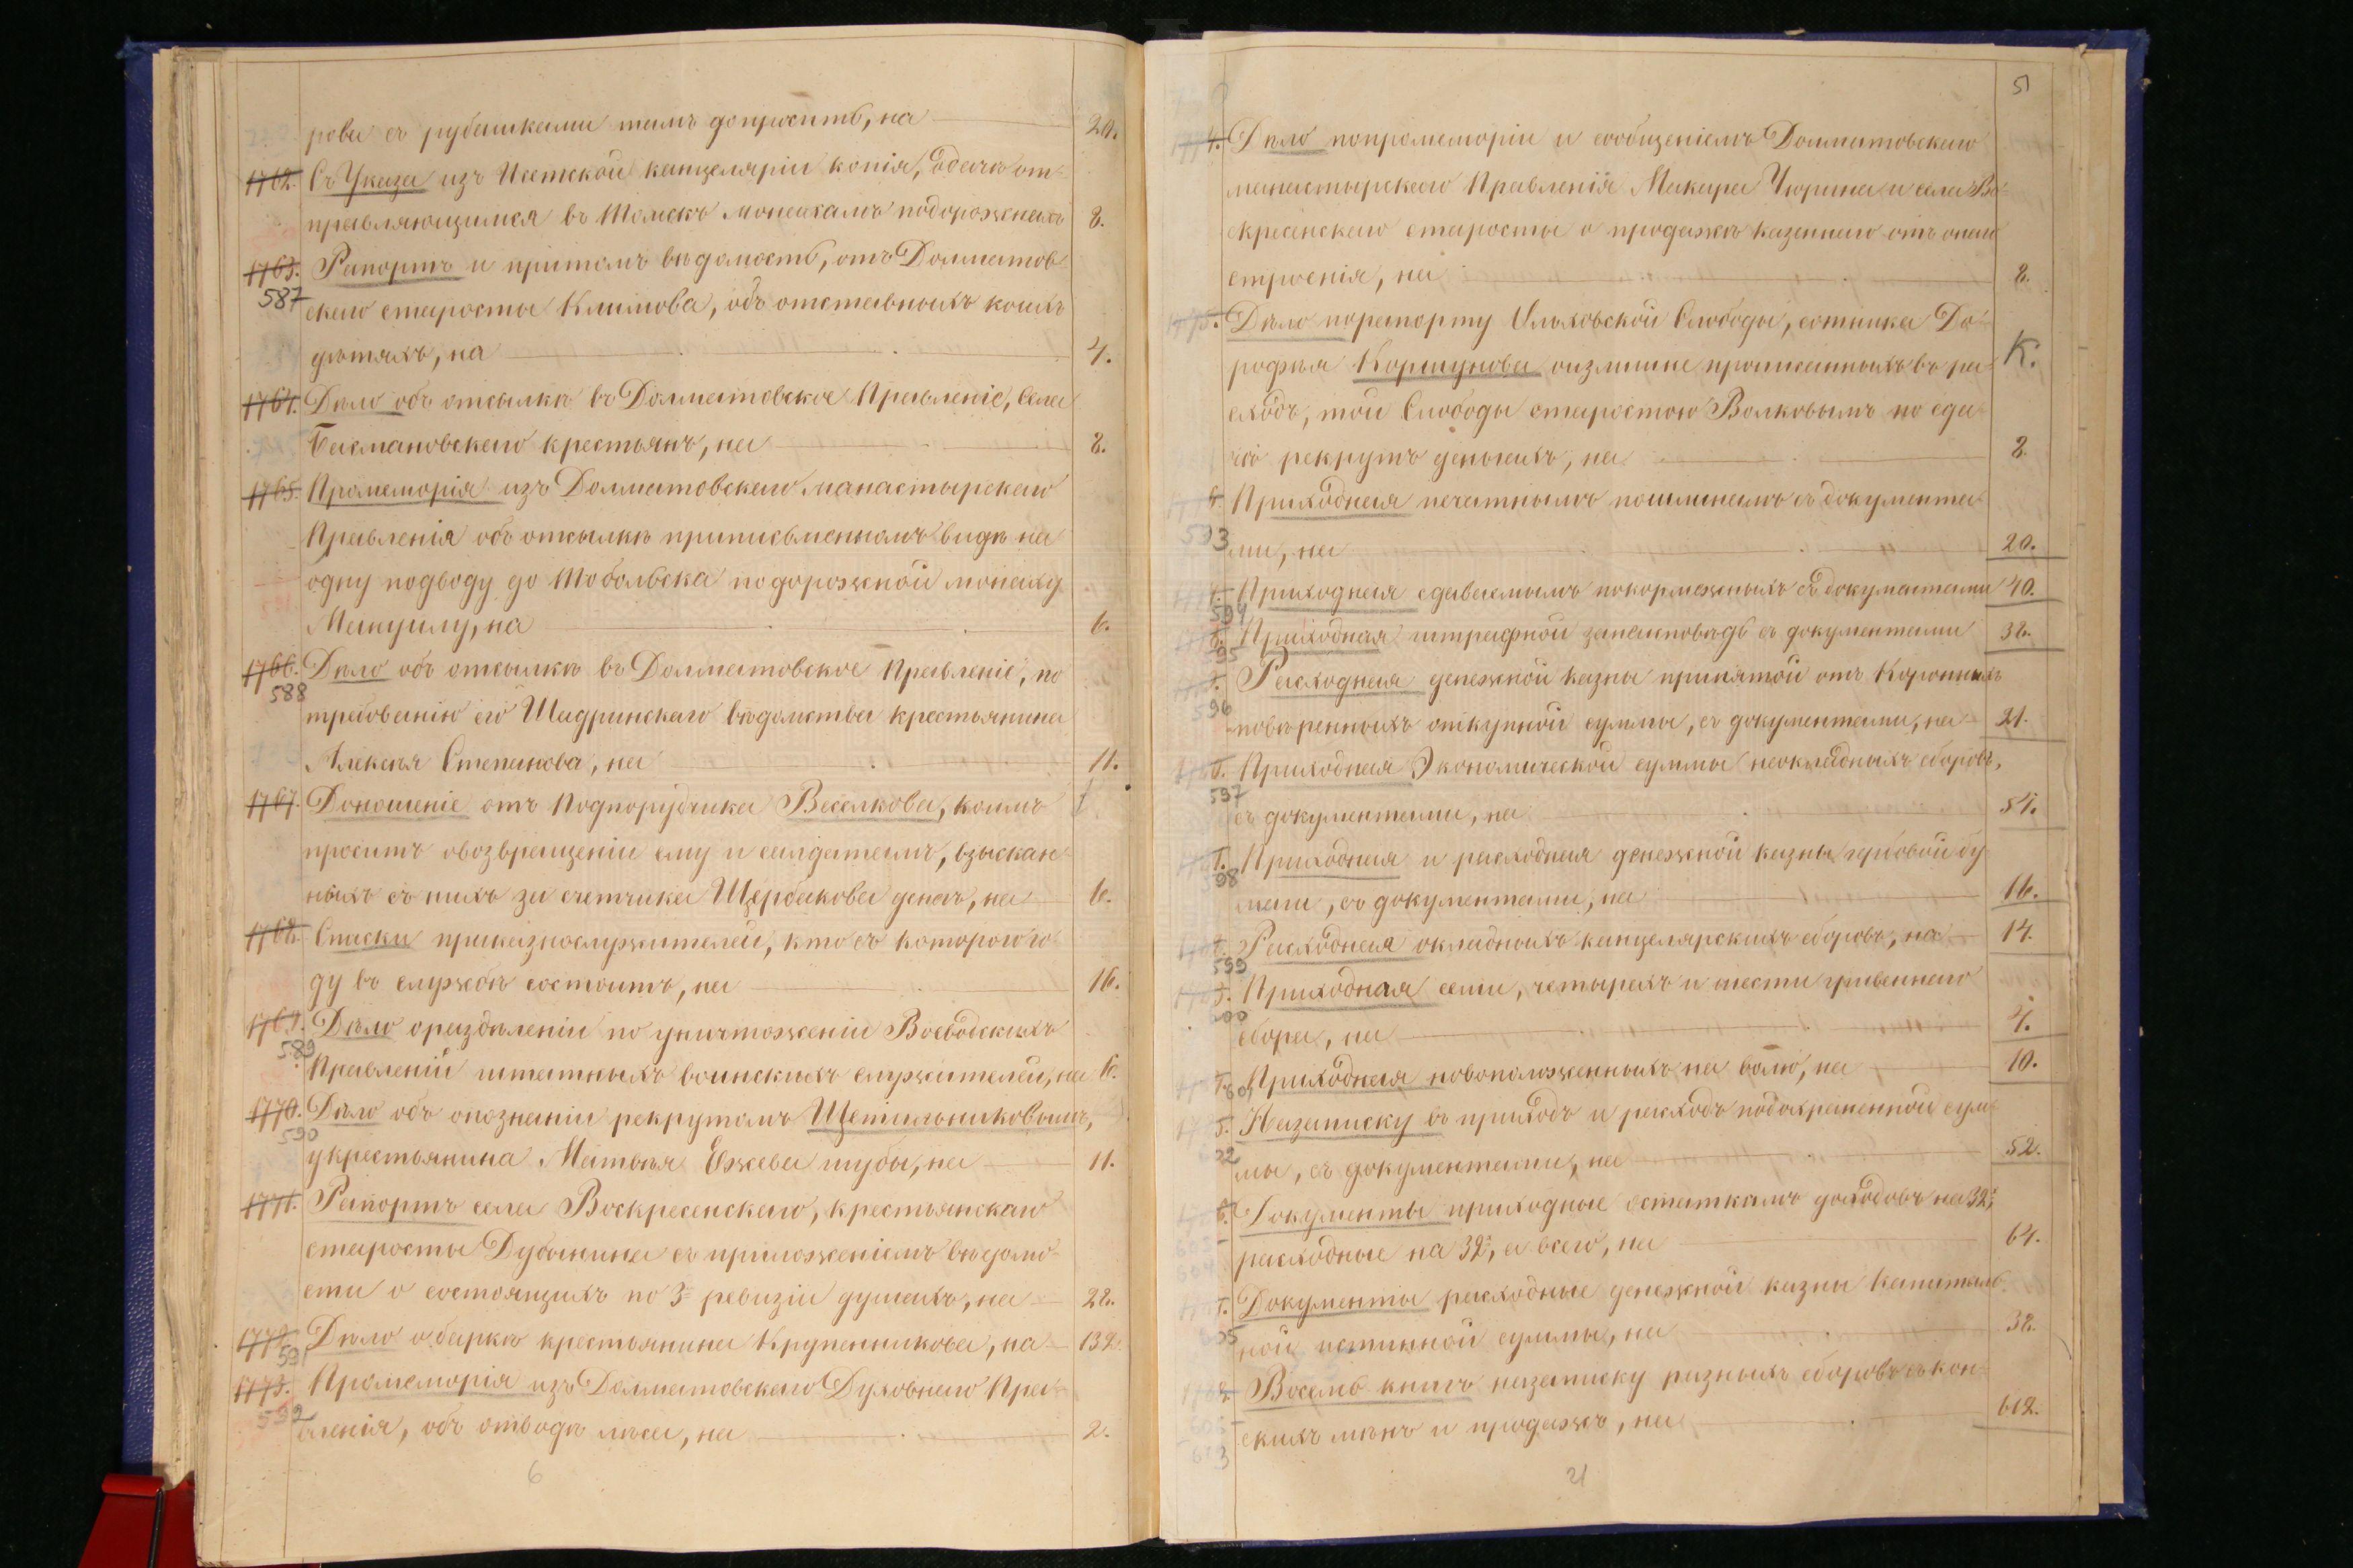 рова съ рубашками тѣмъ допроситъ, на 20.
1762. Съ Указа изъ Исетской канцеляріи копія, одачѣ от-
правляющимся въ Томскъ монахамъ подорожныхъ 8.
1763. Рапортъ и притомъ вѣдомость, отъ Долматов-
587 скаго старосты Климова, объ отставныхъ коихъ
дѣтяхъ, на 4.
1764. Дѣло объ отсылкѣ въ Долматовское Правленіе, села
Басмановскаго крестьянъ, на 8.
1765. Промеморія изъ Долматовскаго манастырскаго
Правленія объ отсылкѣ приписьменномъ видѣ на
одну подводу до Тобольска подорожной монаху
Мануилу, на 6.
1766. Дѣло объ отсылкѣ въ Долматовское Правленіе, по
588 требованію его Шадринскаго вѣдомства крестьянина
Алексѣя Степанова, на 11.
1767. Доношеніе отъ Подпорутчика Веселкова, коимъ
проситъ овозвращеніи ему и салдатамъ, взыскан-
ныхъ съ нихъ за счетчика Щербакова денегъ, на 6.
1768. Списки приказнослужителей, кто съ котораго го-
ду въ службѣ состоитъ, на 16.
1769. Дѣло ораздѣленіи по уничтоженіи Воеводскихъ
589 Правленій штатныхъ воинскихъ служителей, на 6.
1770. Дѣло объ опознаніи рекрутомъ Щетильниковымъ,
590 укрестьянина Матвѣя Ежева шубы, на 11.
1771. Рапортъ села Воскресенскаго, крестьянскаго
старосты Дубынина съ приложеніемъ вѣдомо-
сти о состоящихъ по 3й ревизіи душахъ, на 28.
1772. Дѣло обаркѣ крестьянина Крупенникова, на 132.
591
1773. Промеморія изъ Долматовскаго Духовнаго Прав-
592 ленія, объ отводѣ лѣса, на 2.
6
51
4. Дѣло попромеморіи и сообщеніемъ Долматовскаго
манастырскаго Правленія Макара Чюрина и села Во-
скресенскаго старосты о продажѣ казеннаго отъ онаго
строенія, на 8.
5. Дѣло порапорту Ольховской Слободы, сотника До-
рофѣя Коршунова оизлишне прописанныхъ въ ра- К.
сходъ, той Слободы старостою Волковымъ по сда-
чѣ рекрутъ деньгахъ, на 8.
6. Приходная печатнымъ пошлинамъ съ документа-
593 ми, на 20.
Приходная сдаваемымъ покормежныхъ съ документами 40.
594
Приходная штрафной занеисповѣдь съ документами 32.
95
Расходная денежной казны принятой отъ Коронныхъ
96 повѣренныхъ откупной суммы, съ документами, на 21.
Приходная Экономической суммы неокладныхъ сборовъ,
597 съ документами, на 54.
Приходная и расходная денежной казны гербовой бу-
98 маги, съ документами, на 16.
Расходная окладныхъ канцелярскихъ сборовъ, на 14.
599
Приходная семи, четырехъ и шести гривеннаго
600 сбора, на 4.
Приходная новоположенныхъ на волю, на 10.
601
Назаписку въ приходъ и расходъ подохраненной сум-
02 мы, съ документами, на 52.
Документы приходные остаткамъ доходовъ на 32х,
расходные на 32х, а всего, на 64.
Документы расходные денежной казны Капиталь-
05 ной истинной суммы, на 32.
Восемь книгъ назаписку разныхъ сборовъ съ кон-
скихъ мѣнъ и продажъ, на 612.
21